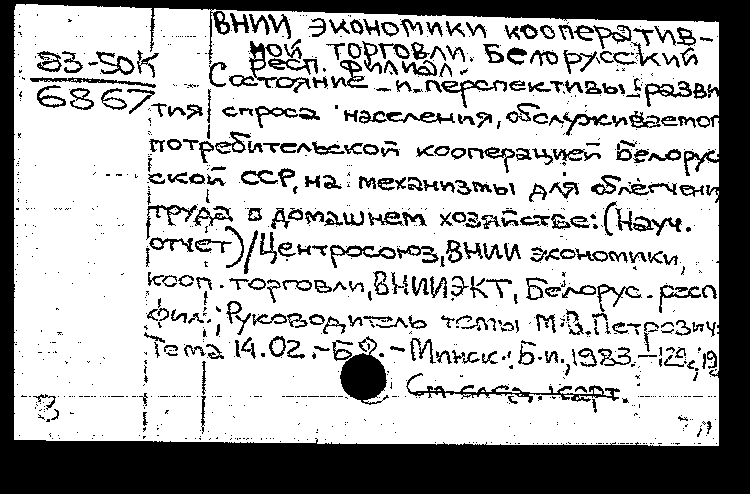 ВНИИ экономики кооператив-
ной торговли. Белорусский
респ. филиал.
83-50К
6867
Состояние и перспективы разви
тия спроса населения, обслуживаемог
потребительской кооперацией Белорус
ской ССР, на механизмы для облегчени
труда в домашнем хозяйстве: (Науч.
отчет)/Центросоюз, ВНИИ экономики
кооп. торговли, ВНИИЭКТ, Белорус. респ
фил.; Руководитель темы М.В.Петрович
Тема 14.02. - Минск: Б.и., 1983. - 129с
См. след. карт.
8